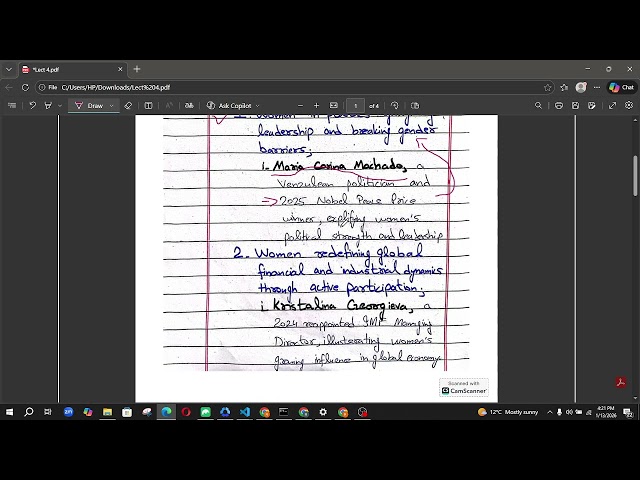 *Lect 4.pdf
File C:/Users/HP/Downloads/Lect%204.pdf
Chat
Draw
Ask Copilot
1 of 4
1. Women in
leadership and breaking gender
barriers;
i. Maria Corina Machado, a
Venzulean politician and
⇒ 2025 Nobel Peace Prize
winner, women's
political strength and leadership
2. Women redefining global
financial and industrial dynamics
through active participation;
i. Kristalina Georgieva, a
2024 reappointed IMF Managing
Director, women's
growing influence in global economy.
Scanned with
CamScanner
12°C Mostly sunny
4:21 PM
1/13/2026